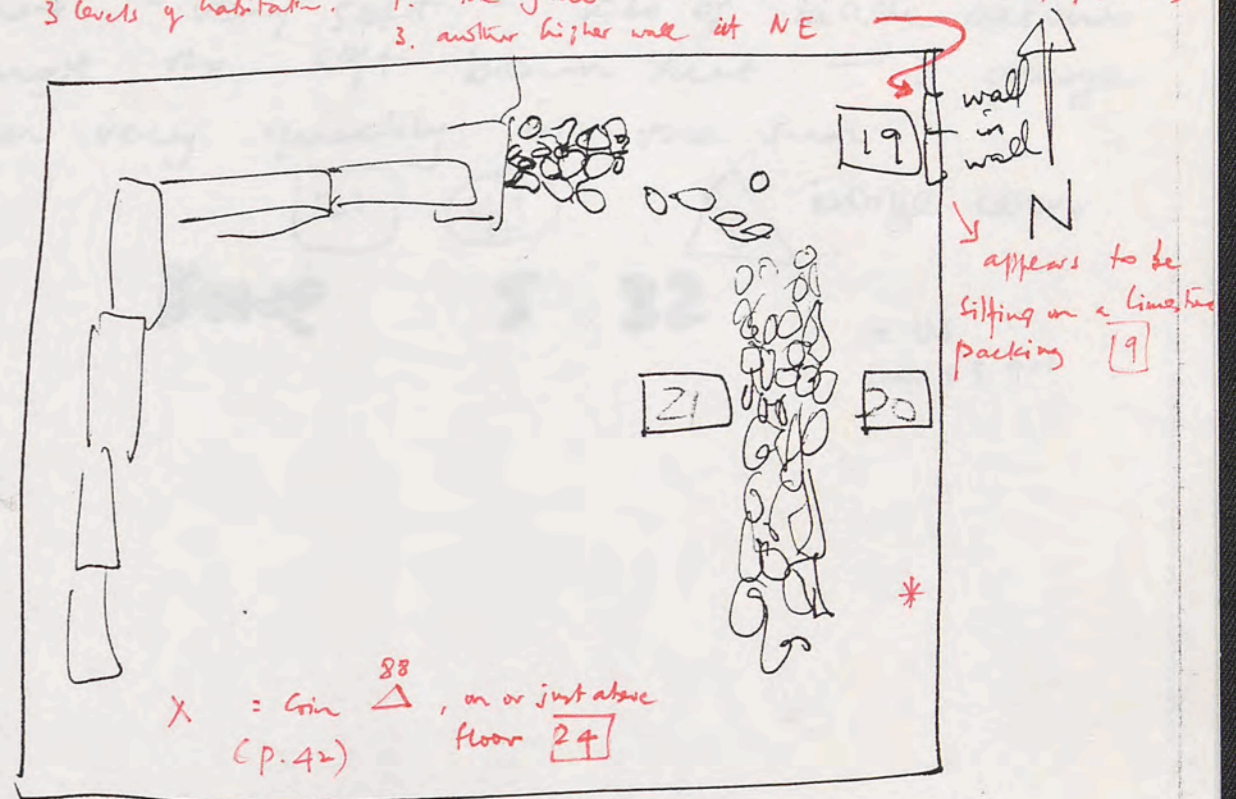 3 levels of habitation.
3. another higher wall at NE
19
wall
in
wall
N
appears to be
sitting on a limestone
packing 19
21
20
*
88
X = Coin △, on or just above
(p.42) floor 24